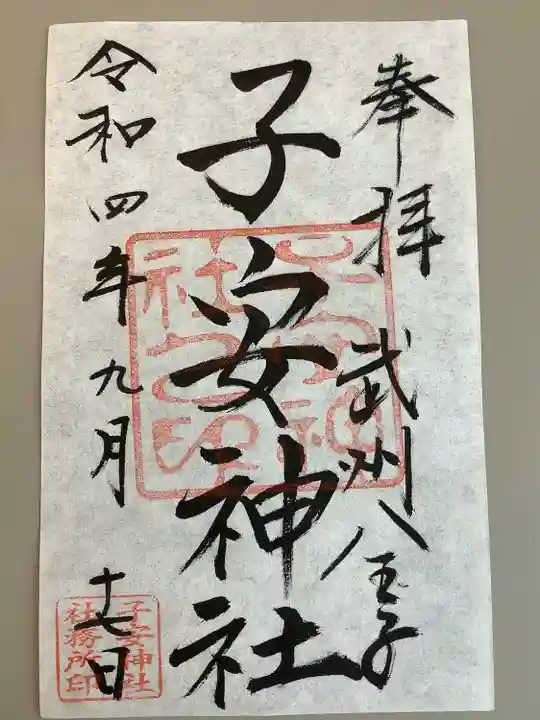 奉拝
武州八王子
子安神社
令和四年九月十七日
子安神社
社務所印